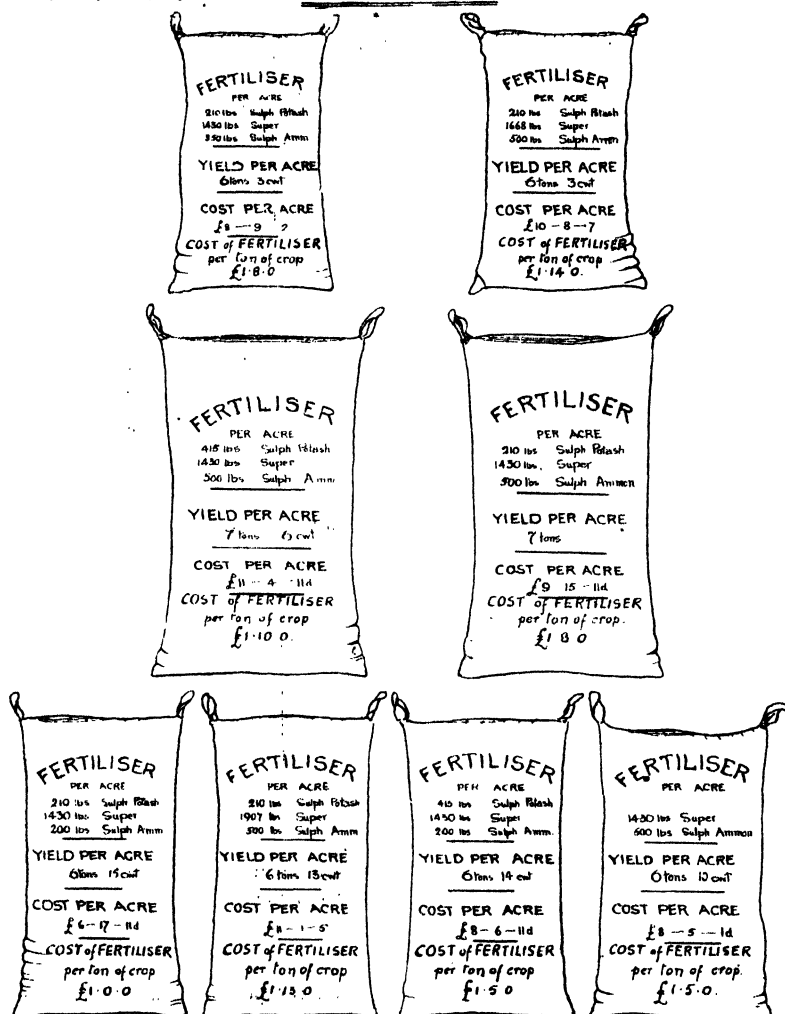 FERTILISER
PER ACRE
210 lbs Sulph Potash
1430 lbs Super
350 lbs Sulph Amm
YIELD PER ACRE
6 tons 3 cwt
COST PER ACRE
£8 - 9
COST of FERTILISER
per ton of crop
£1·8·0
FERTILISER
PER ACRE
210 lbs Sulph Potash
1668 lbs Super
500 lbs Sulph Amm
YIELD PER ACRE
6 tons 3 cwt
COST PER ACRE
£10 - 8 - 7
COST of FERTILISER
per ton of crop
£1·14·0.
FERTILISER
PER ACRE
415 lbs Sulph Potash
1430 lbs Super
500 lbs Sulph Amm
YIELD PER ACRE
7 tons cwt
COST PER ACRE
£11 - 4 - 11d
COST of FERTILISER
per ton of crop
£1·10 0.
FERTILISER
PER ACRE
210 lbs Sulph Potash
1430 lbs. Super
500 lbs Sulph Ammon
YIELD PER ACRE
7 tons
COST PER ACRE
£9 15 - 11d
COST of FERTILISER
per ton of crop.
£1 8 0
FERTILISER
PER ACRE
210 lbs Sulph Potash
1430 lbs Super
200 lbs Sulph Amm
YIELD PER ACRE
6 tons cwt
COST PER ACRE
£6 - 17 - 11d
COST of FERTILISER
per ton of crop
£1·0·0
FERTILISER
PER ACRE
210 lbs Sulph Potash
1907 lbs Super
500 lbs Sulph Amm
YIELD PER ACRE
6 tons 13 cwt
COST PER ACRE
£11 - 1 - 5
COST of FERTILISER
per ton of crop
£1·13·0
FERTILISER
PER ACRE
415 lbs Sulph Potash
1430 lbs Super
200 lbs Sulph Amm.
YIELD PER ACRE
6 tons 14 cwt
COST PER ACRE
£8 - 6 - 11d
COST of FERTILISER
per ton of crop
£1·5 0
FERTILISER
PER ACRE
1430 lbs Super
500 lbs Sulph Ammon
YIELD PER ACRE
6 tons cwt
COST PER ACRE
£8 - 5 - 1d
COST of FERTILISER
per ton of crop.
£1·5·0.